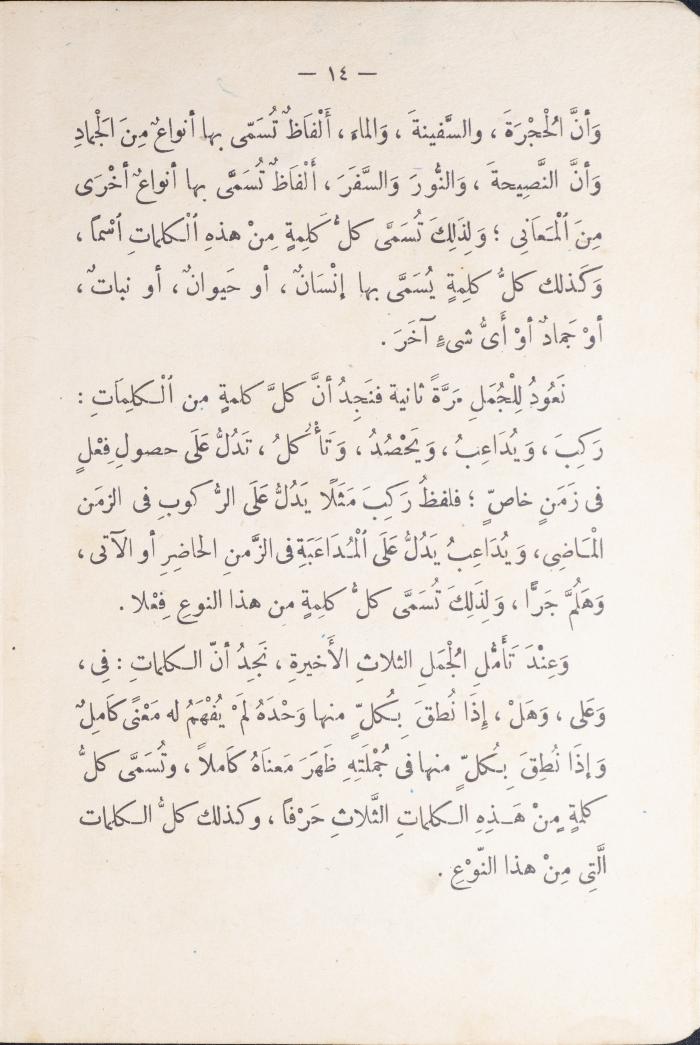 — ١٤ —
وَأنَّ الْحُجْرَةَ ، والسَّفينةَ ، وَالماءَ ، أَلْفَاظٌ تُسَمّى بها أنواعٌ مِنَ الْجمادِ
وَأنَّ النَّصِيحةَ ، وَالنُّورَ وَالسَّفَرَ ، أَلْفَاظٌ تُسَمَّى بها أنواعٌ أخْرَى
مِنَ الْمَعَانِى ؛ وَلِذَلِكَ تُسَمَّى كلُّ كَلِمةٍ مِنْ هذهِ الْكلماتِ اُسْماً ،
وَكَذلك كلُّ كلِمةٍ يُسَمَّى بها إنْسَانٌ ، أو حَيوانٌ ، أو نباتٌ ،
أوْ جَمادٌ أوْ أَىُّ شىءٍ آخَرَ .
نَعُودُ لِلْجُمَلِ مَرَّةً ثانية فنَجِدُ أنَّ كلَّ كلمةٍ من الْكلِمَاتِ :
رَكِبَ ، وَيُدَاعِبُ ، وَيَحْصُدُ ، وَتَأْكلُ ، تَدُلُّ عَلَى حصولِ فِعْلٍ
فى زَمَنٍ خاصٍّ ؛ فلفظُ رَكِبَ مَثَلًا يَدُلُّ عَلَى الرُّكوبِ فى الزمَن
الْمَاضِى ، وَيُدَاعِبُ يَدُلُّ عَلَى الْمُدَاعَبَةِ فى الزَّمنِ الحاضِرِ أو الآتى ،
وَهَلُمَّ جَرًّا ، وَلِذَلِكَ تُسَمَّى كلُّ كلِمةٍ من هذا النوعِ فِعْلا .
وَعِنْدَ تَأَمُّلِ الْجُمَلِ الثلاثِ الأَخيرةِ ، نَجِدُ أنّ الكلماتِ : فِى ،
وَعَلى ، وَهَلْ ، إِذَا نُطِقَ بِكُلٍّ منها وَحْدَهُ لَمْ يُفْهَمُ له مَعْنًى كَامِلٌ
وَإذَا نُطِقَ بِكُلٍّ منها فى جُمْلَتِهِ ظَهَرَ مَعناهُ كَاملاً ، وتُسَمَّى كلُّ
كلمةٍ مِنْ هَذِهِ الكلماتِ الثَّلاثِ حَرْفاً ، وكذلك كلُّ الكلمات
الَّتِى مِنْ هذا النّوْعِ .